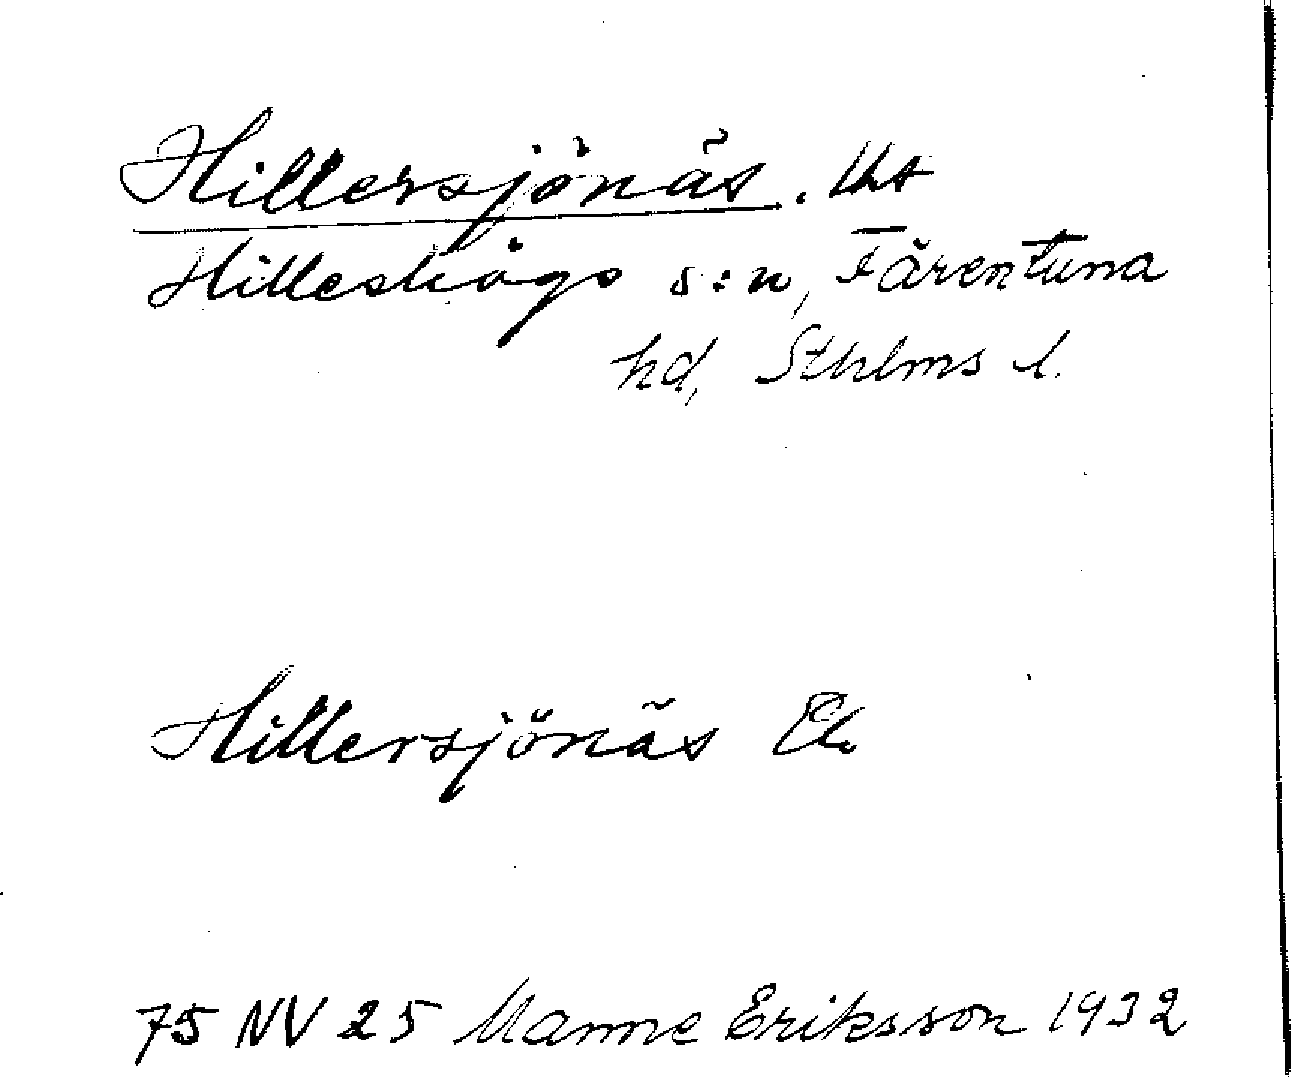 Hillersjönäs. Uts
Hilleshögs s:n, Färentuna
hd, Sthlms l.
Hillersjönäs Ek.
75 NV 25 Manne Eriksson 1932